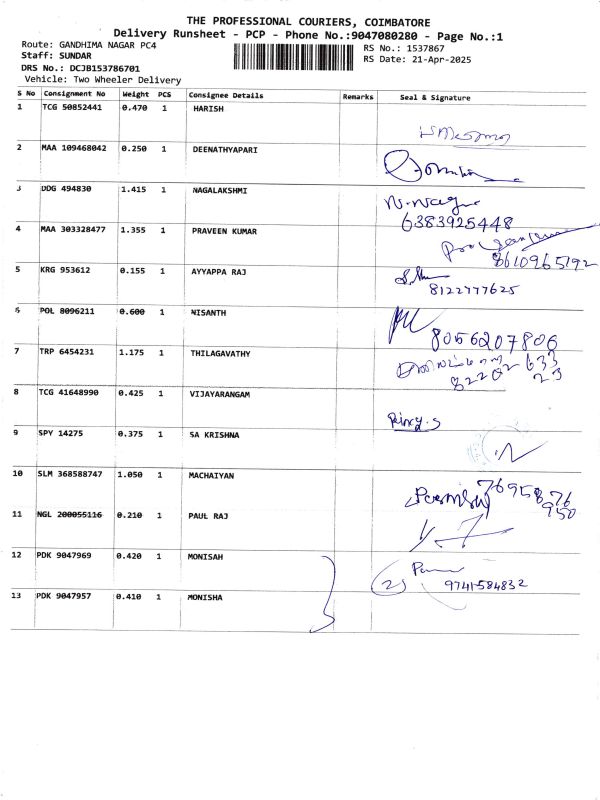 THE PROFESSIONAL COURIERS, COIMBATORE
Delivery Runsheet - PCP - Phone No.:9047080280 - Page No.:1
Route: GANDHIMA NAGAR PC4
RS No.: 1537867
Staff: SUNDAR
RS Date: 21-Apr-2025
DRS No.: DCJB153786701
Vehicle: Two Wheeler Delivery
S No Consignment No Weight PCS Consignee Details Remarks Seal & Signature
1 TCG 50852441 0.470 1 HARISH
2 MAA 109468042 0.250 1 DEENATHYAPARI
3 DDG 494830 1.415 1 NAGALAKSHMI
6383925448
4 MAA 303328477 1.355 1 PRAVEEN KUMAR
8610965192
5 KRG 953612 0.155 1 AYYAPPA RAJ
8122777625
6 POL 8096211 0.600 1 NISANTH
8056207806
7 TRP 6454231 1.175 1 THILAGAVATHY
8 TCG 41648990 0.425 1 VIJAYARANGAM
9 SPY 14275 0.375 1 SA KRISHNA
10 SLM 368588747 1.050 1 MACHAIYAN
11 NGL 200055116 0.210 1 PAUL RAJ
12 PDK 9047969 0.420 1 MONISAH
2
9741584832
13 PDK 9047957 0.410 1 MONISHA